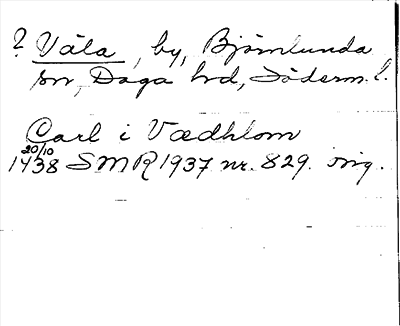 ? Våla, by, Björnlunda
sn, Daga hd, Söderm. l.
Carl i Vædhlom
20/10
1438 SMR 1937 nr. 829. orig.